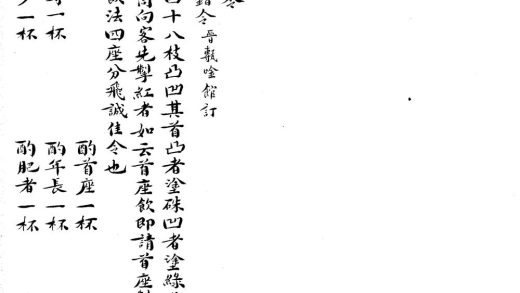 令
令晉甎唫館訂
十八枝凸凹其首凸者塗硃凹者塗綠
向客先掣紅者如云首座飲即請首座
法四座分飛誠佳令也
酌首座一杯
一杯 酌年長一杯
一杯 酌肥者一杯